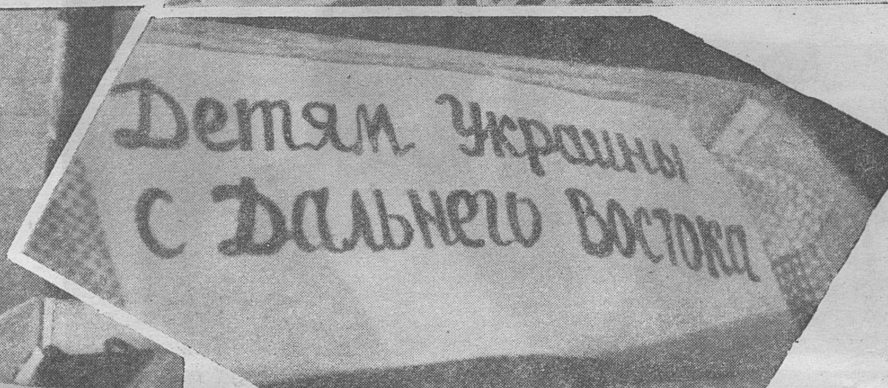 Детям Украины
с Дальнего Востока